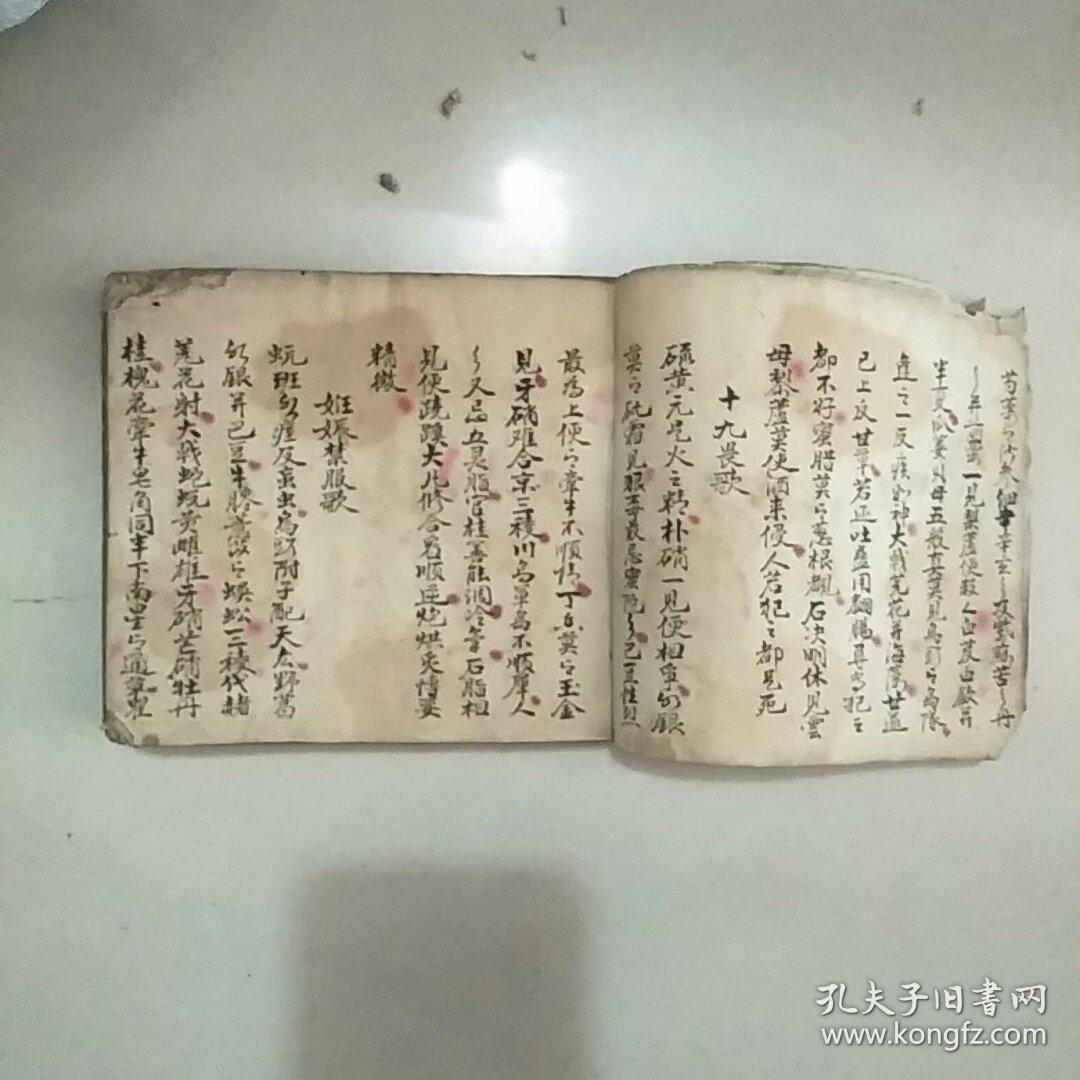 芍药与沙参細辛
一見梨蘆便殺人白芨白歛并
半夏瓜蒌貝母五
逢之一反疾如神大戟芫花并海藻甘遂
已上反甘草若正吐蠱用翻腸尋常犯之
都不好蜜腊莫与葱根覩石决明休見雲
母梨蘆莫使酒来侵人若犯之都是死
十九畏歌
硫黄元是火之精朴硝一見便相爭水銀
莫与砒霜見狼毒最忌蜜陀巴豆性烈
最為上便与牽牛不順情丁香莫与玉金
見牙硝难合京三稜川烏草烏不順犀人
又忌五灵脂官桂善能调冷氣石脂相
見便跷蹊大凡修合看順逆炮烘炙煿要
精微
妊娠禁服歌
蚖班水蛭及虻虫烏頭附子配天雄野葛
水銀并巴豆牛膝薏苡与蜈蚣三稜代赭
芫花射大戟蛇蜕黄雌雄牙硝芒硝牡丹
桂槐花牽牛皂角同半下南星与通草瞿
孔夫子旧書网
www.kongfz.com